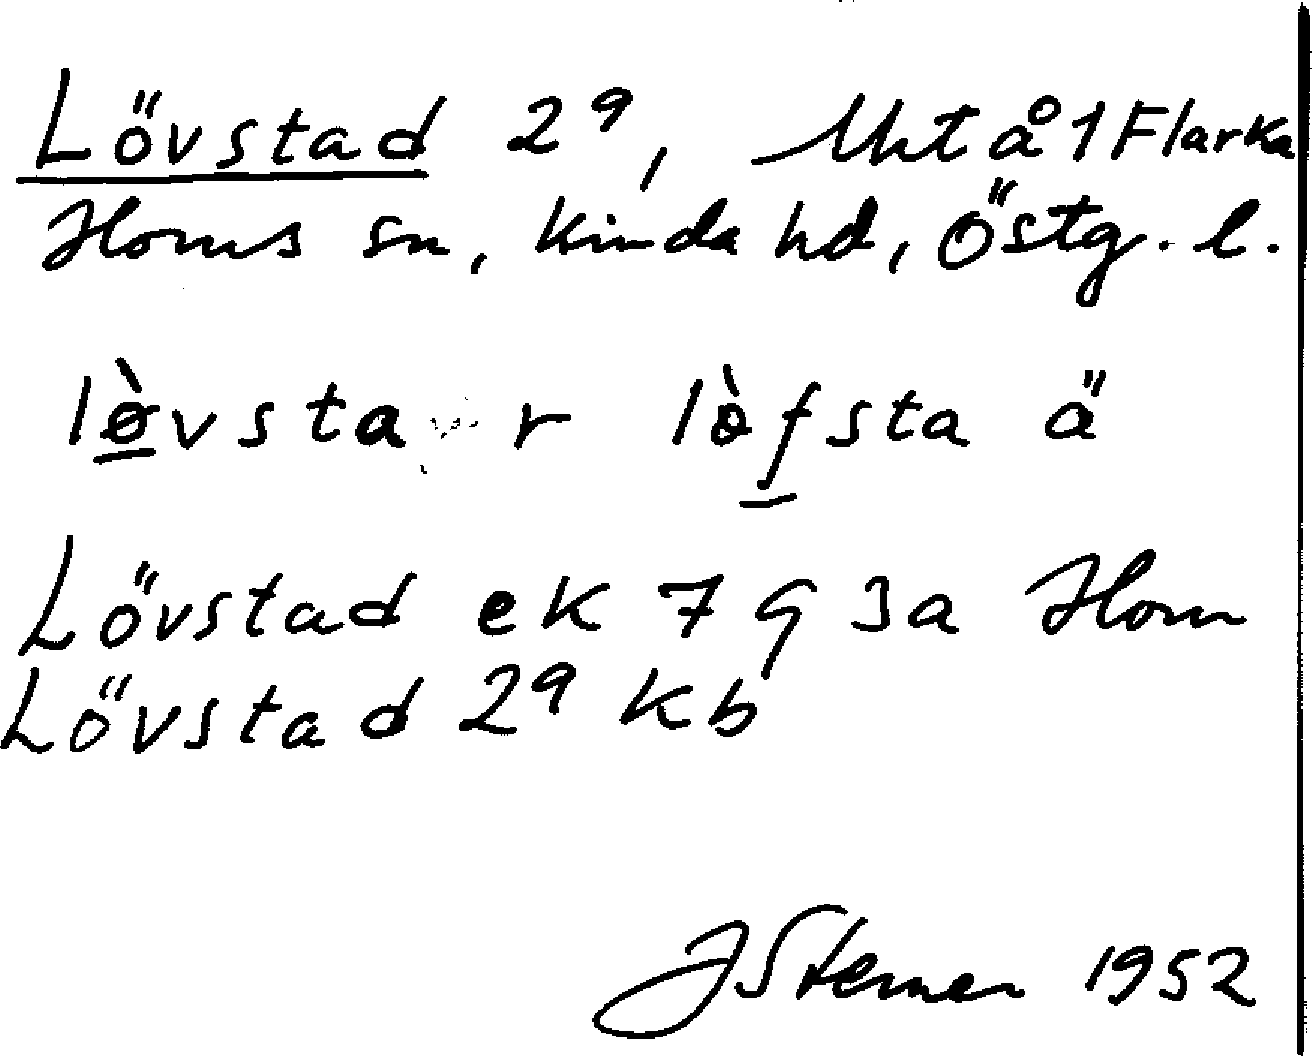 Lövstad 2⁹, Uht å 1 Flarka
Horns sn, Kinda hd, Östg. l.
lø̀vsta r lø̀fsta ä
Lövstad ek 7 g 3a Horn
Lövstad 2⁹ Kb
J Sterner 1952